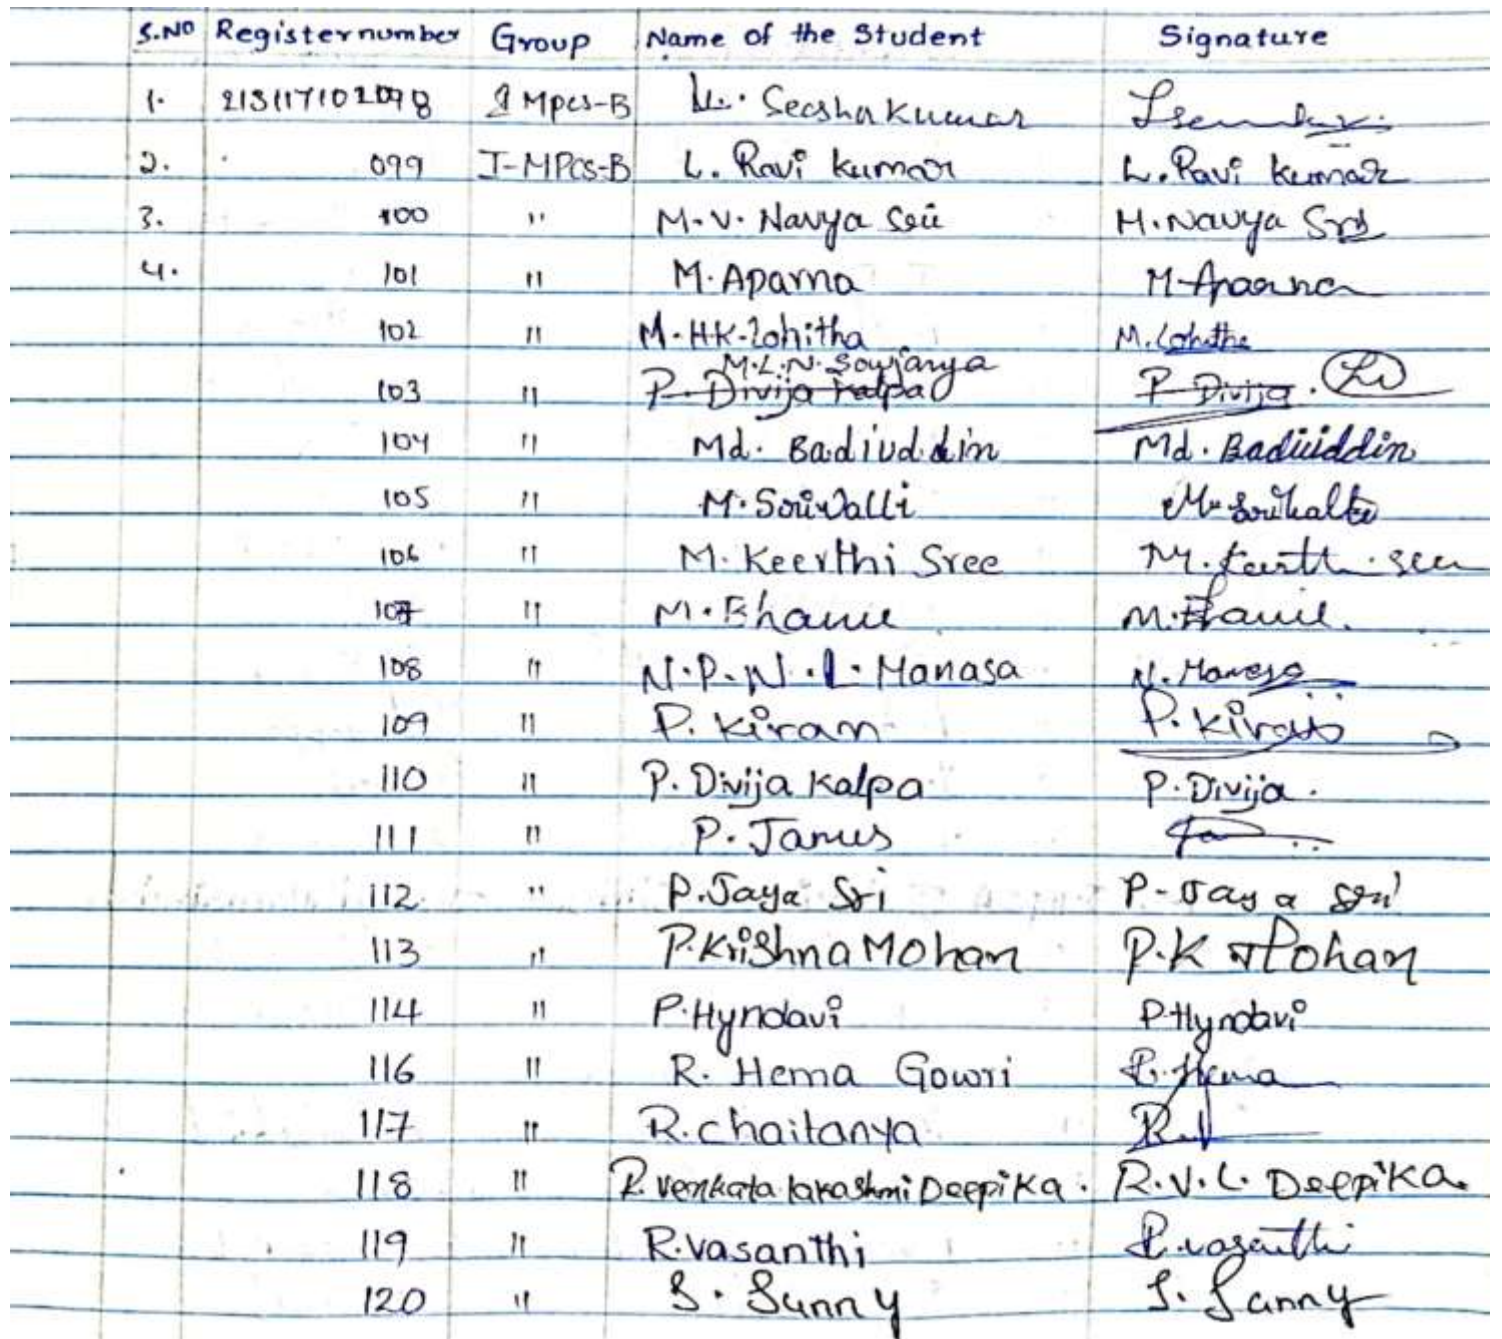 S.NO Register number Group Name of the Student Signature
1. 213117102098 I MPCS-B L. Seesha Kumar
2. 099 I-MPCS-B L. Ravi Kumar L. Ravi Kumar
3. 100 " M.V. Navya Sri M. Navya Sri
4. 101 " M. Aparna M Aparna
102 " M.H.K. Lohitha M. Lohitha
M.L.N. Sowjanya
103 " P. Divija Kalpa P Divija.
104 " Md. Badiuddin Md. Badiuddin
105 " M. Sri Valli M. Srivalli
106 " M. Keerthi Sree M. Keerthi Sree
107 " M. Bhanu M. Bhanu.
108 " N.P.N.L. Manasa N. Manasa
109 " P. Kiran P. Kiran
110 " P. Divija Kalpa P. Divija.
111 " P. Janus
112 " P. Jaya Sri P. Jaya Sri
113 " P. Krishna Mohan P.K Mohan
114 " P. Hyndavi P. Hyndavi
116 " R. Hema Gowri R. Hema
117 " R. Chaitanya R.
118 " R. Venkata lakashmi Deepika. R.V.L. Deepika.
119 " R. Vasanthi R. Vasanthi
120 " S. Sunny S. Sunny